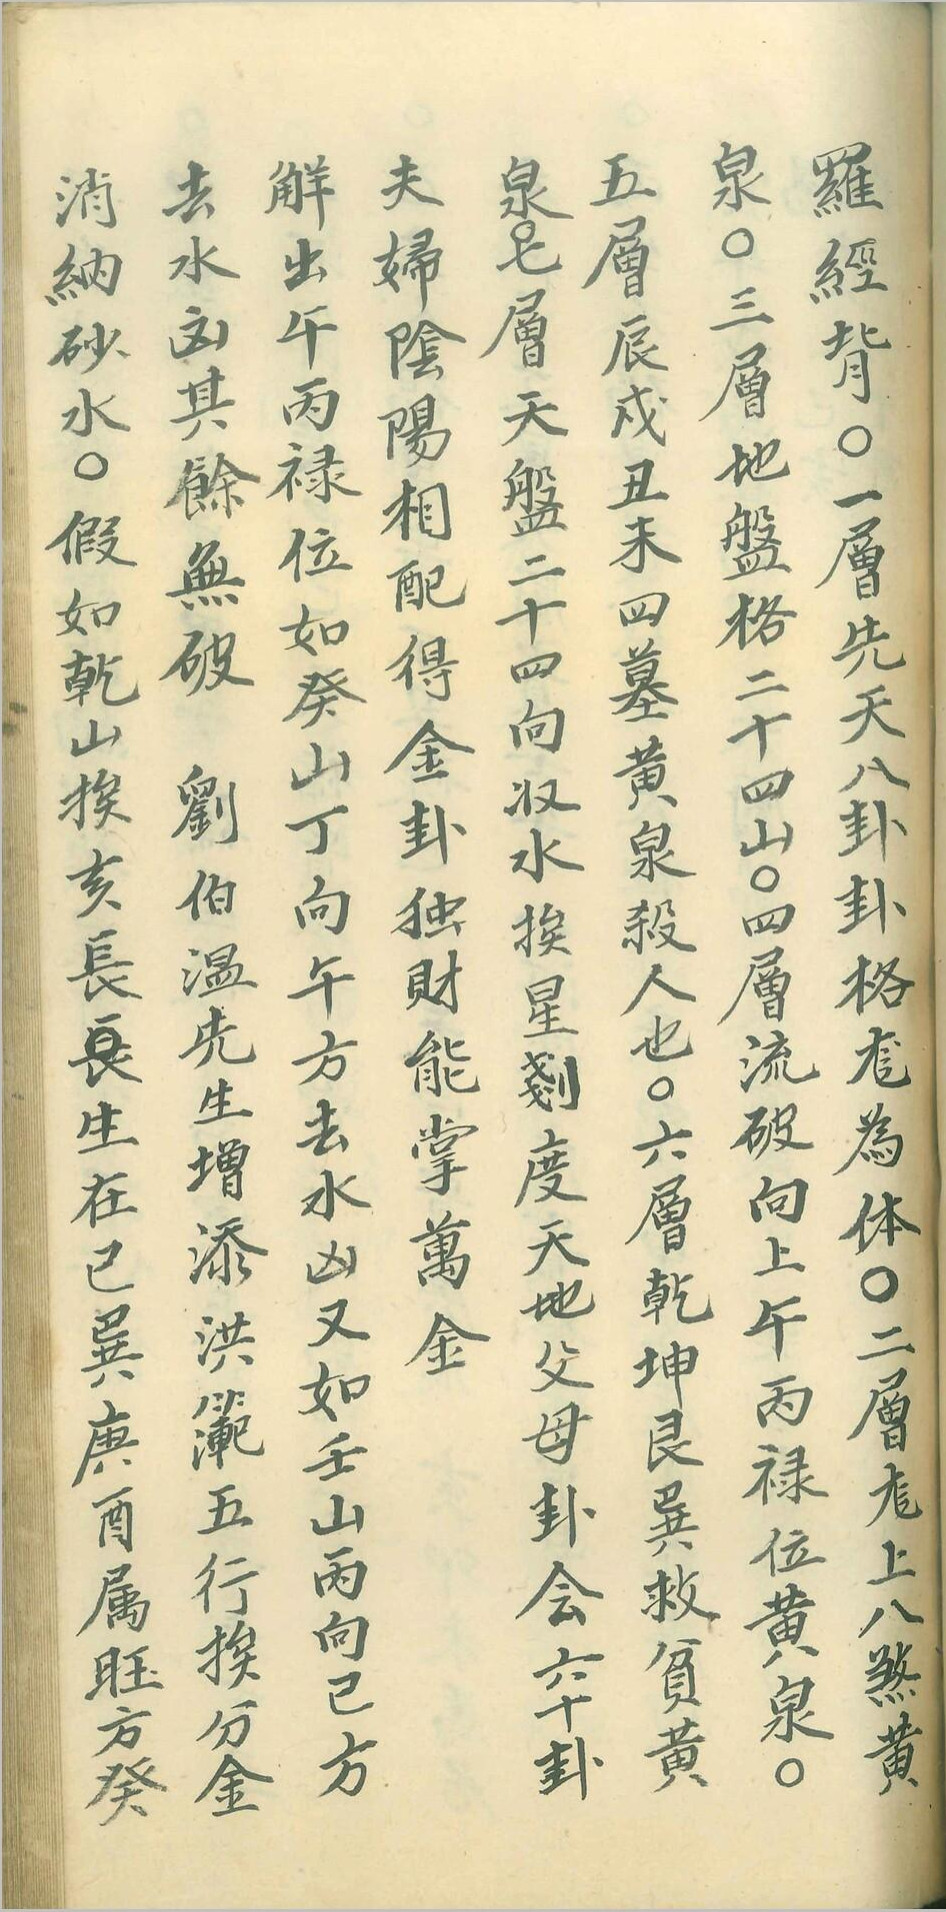 羅經背〇一層先天八卦卦格尨為体〇二層尨上八煞黄
泉〇三層地盤格二十四山〇四層流破向上午丙禄位黄泉〇
五層辰戍丑未四墓黄泉殺人也〇六層乾坤艮巽救貧黄
泉〇七層天盤二十四向収水挨星剗度天地父母卦会六十卦
夫婦陰陽相配得金卦独財能掌萬金
解出午丙禄位如癸山丁向午方去水凶又如壬山丙向己方
去水凶其餘無破 劉伯溫先生增添洪範五行挨分金
消納砂水〇假如乾山挨亥長生在己巽庚酉属旺方癸